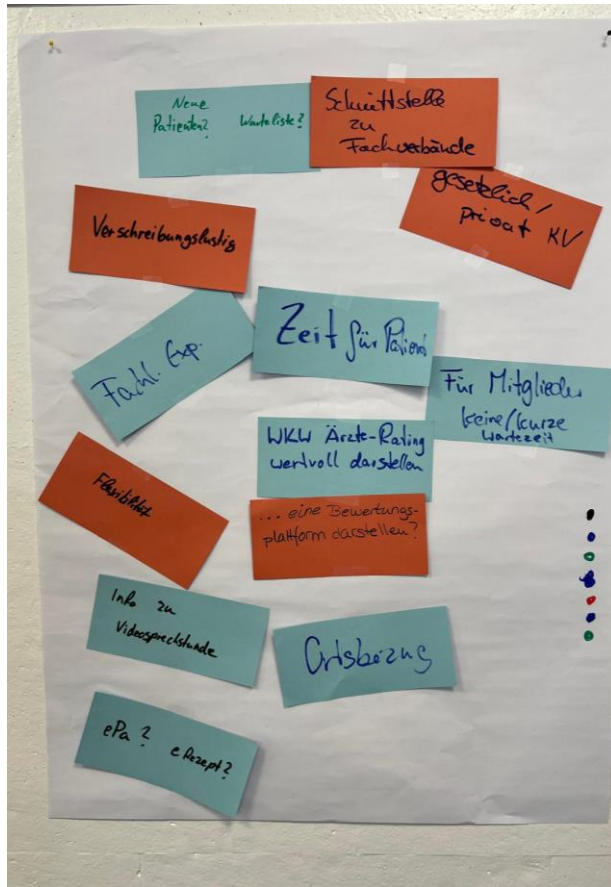 Neue
Patienten? Warteliste?
Schnittstelle
zu
Fachverbände
gesetzlich/
privat KV
Verschreibungslustig
Fachl. Exp.
Zeit für Patient
Für Mitglieder
keine/kurze
wartezeit
WKW Ärzte-Rating
wertvoll darstellen
Flexibilität
... eine Bewertungs-
plattform darstellen?
Info zu
Videosprechstunde
Ortsbezug
ePa? eRezept?